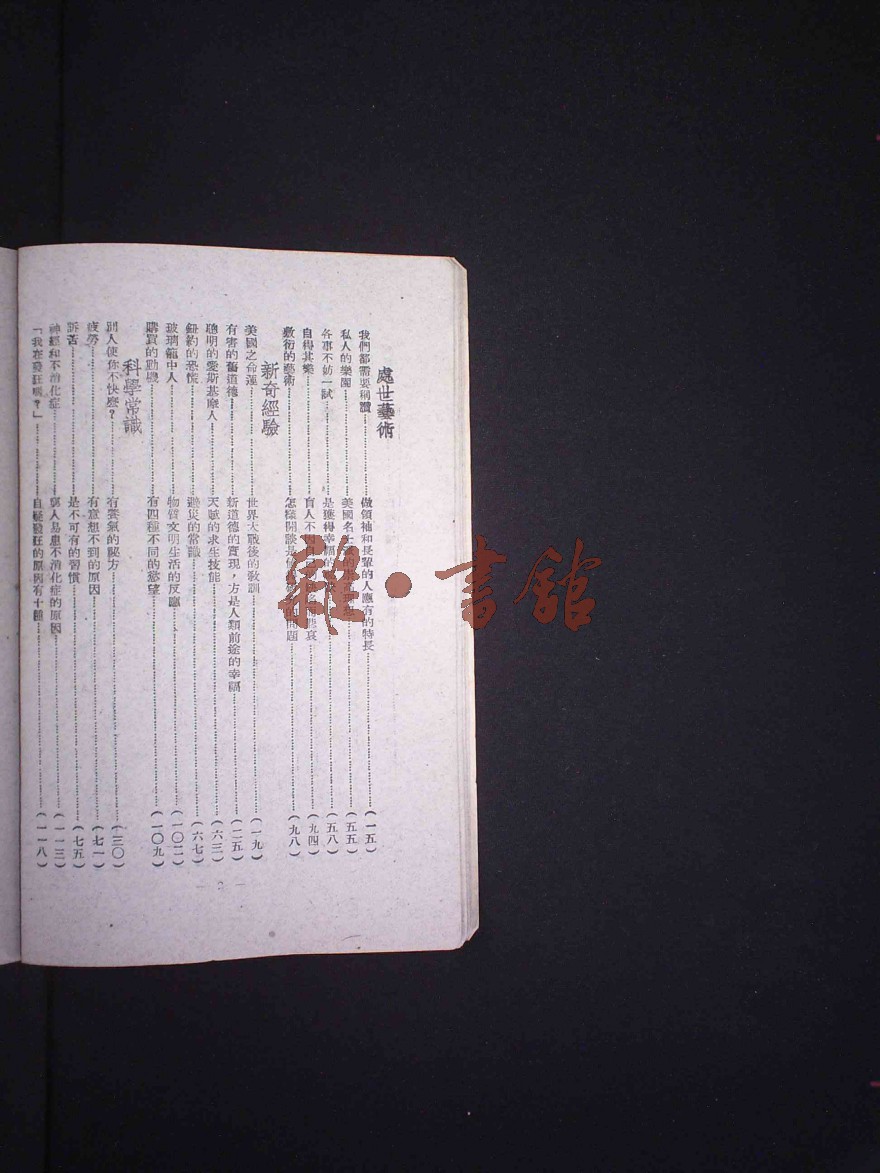 處世藝術
我們都需要稱讚……做領袖和長輩的人應有的特長……(一五)
私人的樂園……美國名士……(五五)
各事不妨一試……是獲得幸福的……(五八)
自得其樂……盲人不……哀……(九四)
敷衍的藝術……怎樣開談是……問題……(九八)
新奇經驗
美國之命運……世界大戰後的教訓……(一九)
有害的舊道德……新道德的實現，方是人類前途的幸福……(二五)
聰明的愛斯基摩人……天賦的求生技能……(六三)
紐約的恐慌……避災的常識……(六七)
玻璃籠中人……物質文明生活的反應……(一〇二)
購買的動機……有四種不同的慾望……(一〇九)
科學常識
別人使你不快麼？……有養氣的祕方……(三〇)
疲勞……有意想不到的原因……(七一)
訴苦……是不可有的習慣……(七五)
神經和不消化症……人易患不消化症的原因……(一一三)
「我在發狂嗎？」……自疑發狂的原因有十種……(一一八)
雜·書館